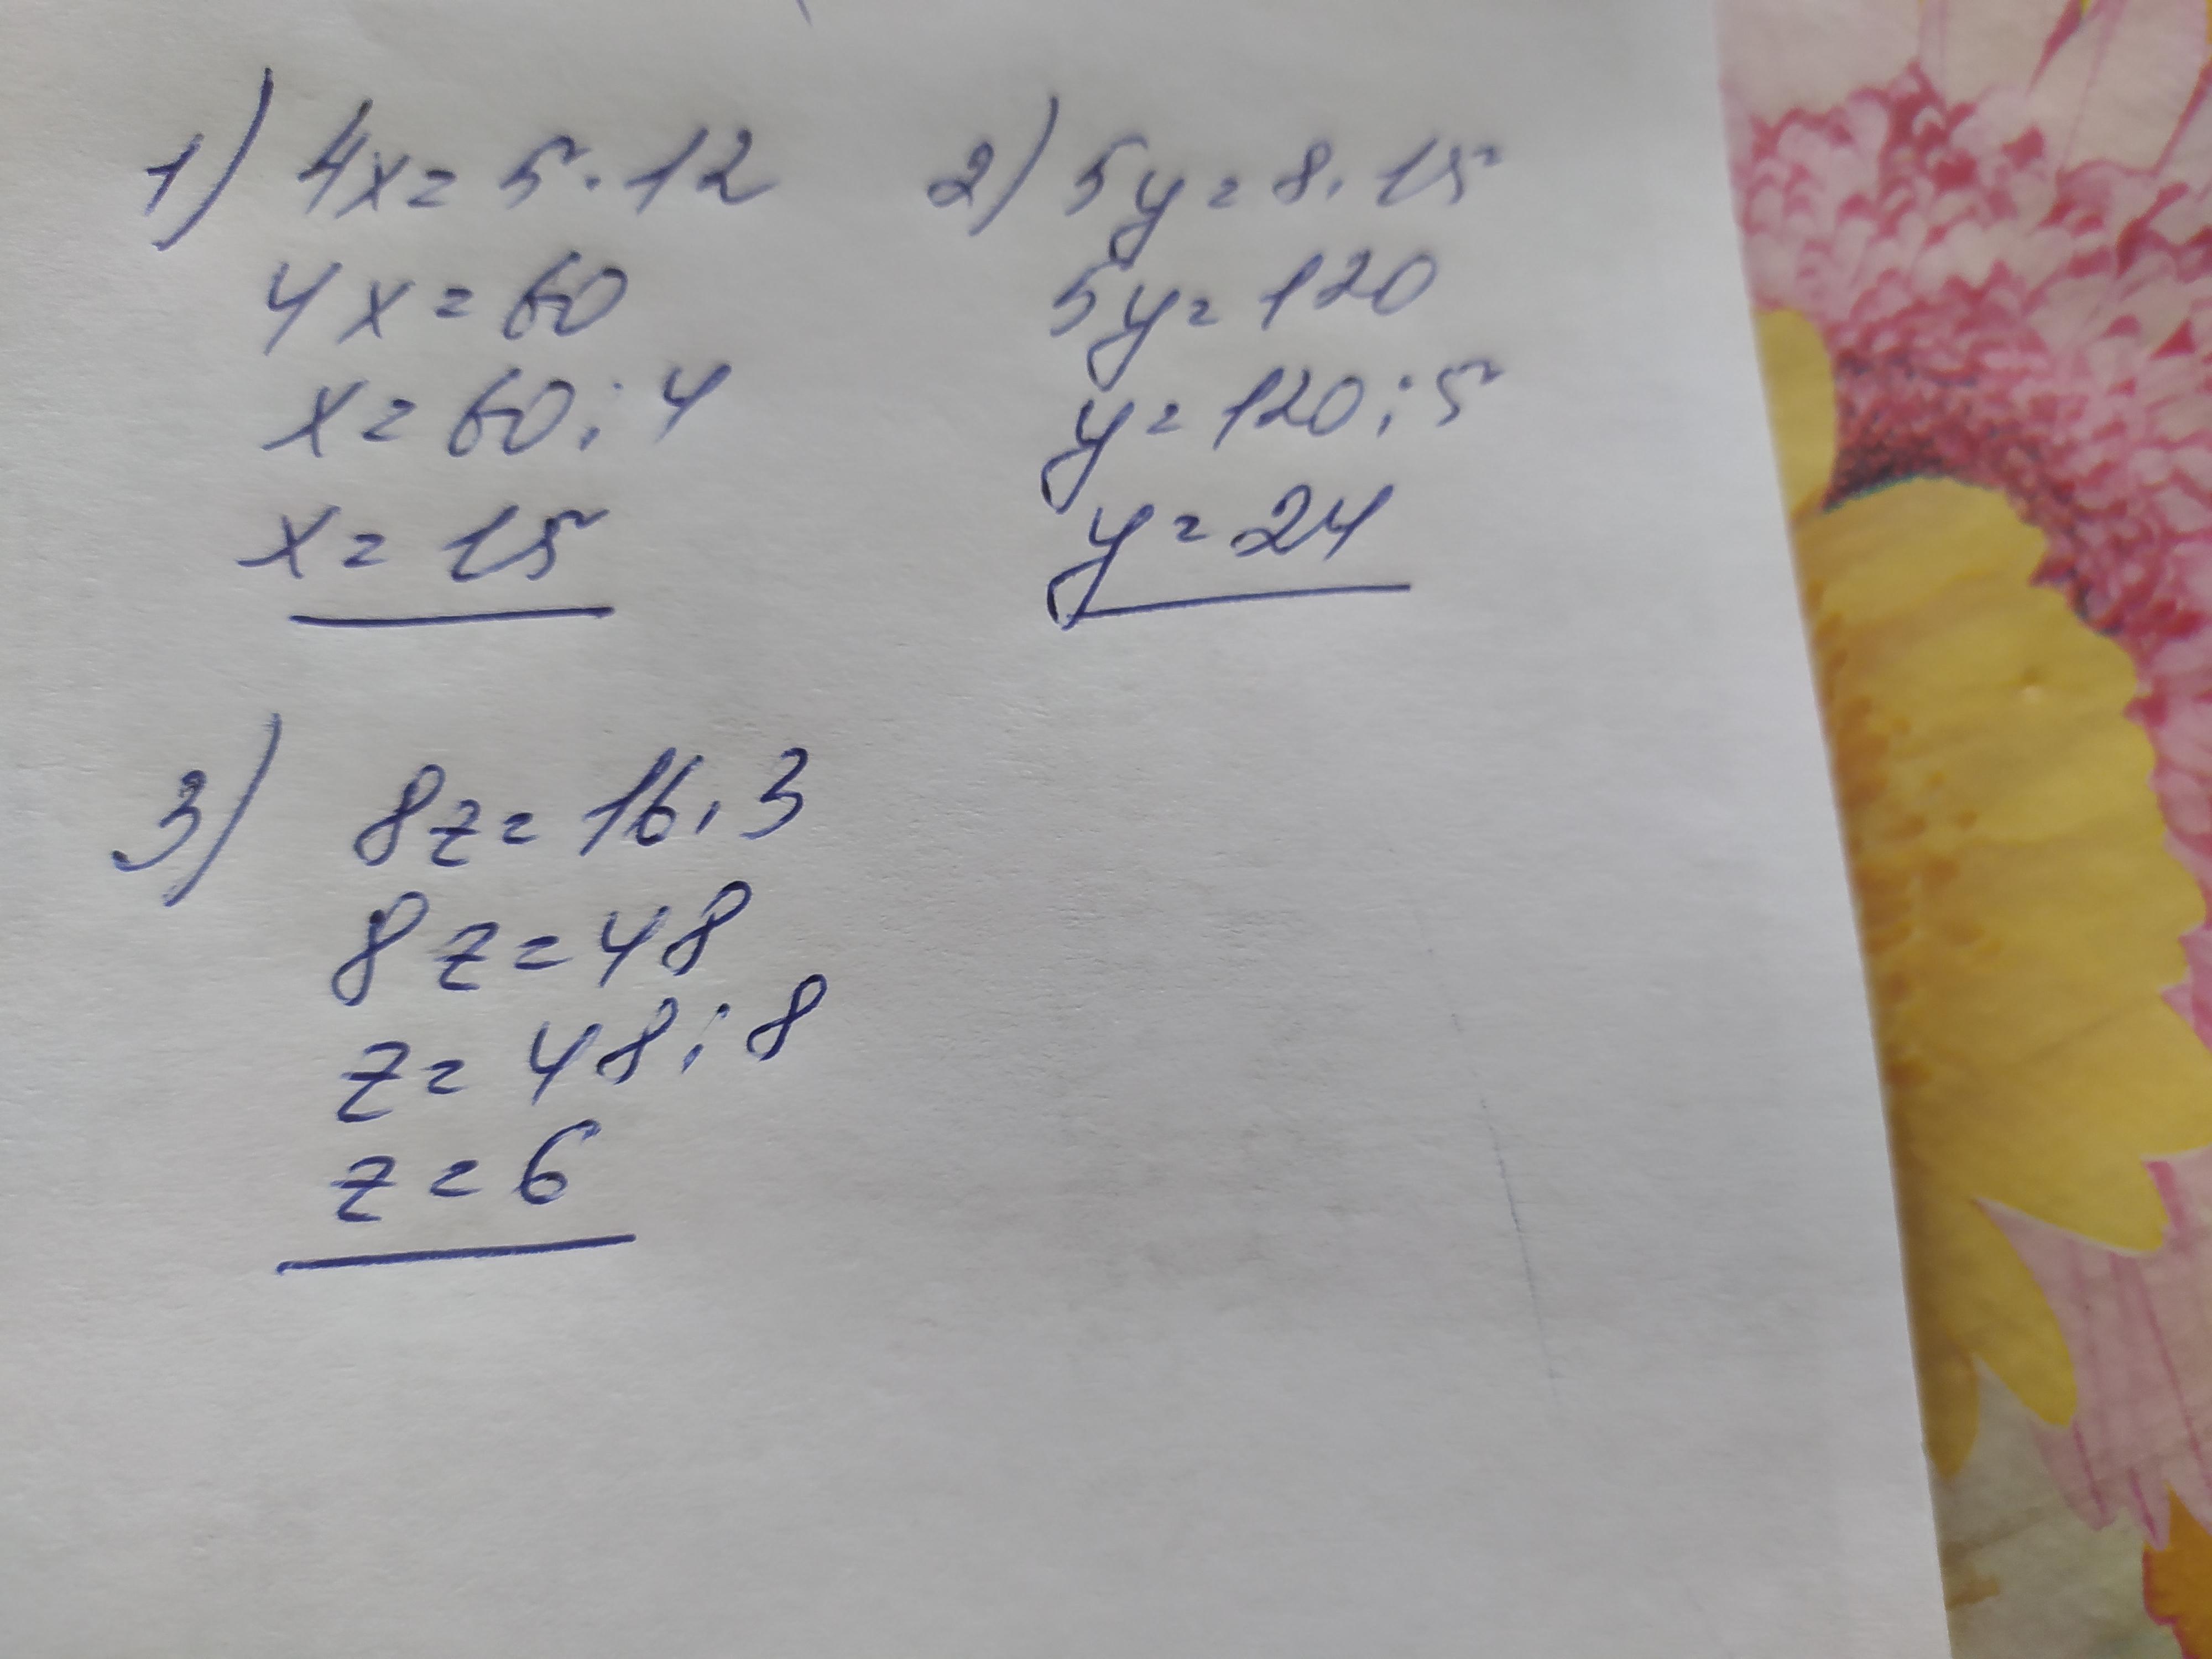 1) 4x = 5 · 12
4x = 60
x = 60 : 4
x = 15
2) 5y = 8 · 15
5y = 120
y = 120 : 5
y = 24
3) 8z = 16 · 3
8z = 48
z = 48 : 8
z = 6